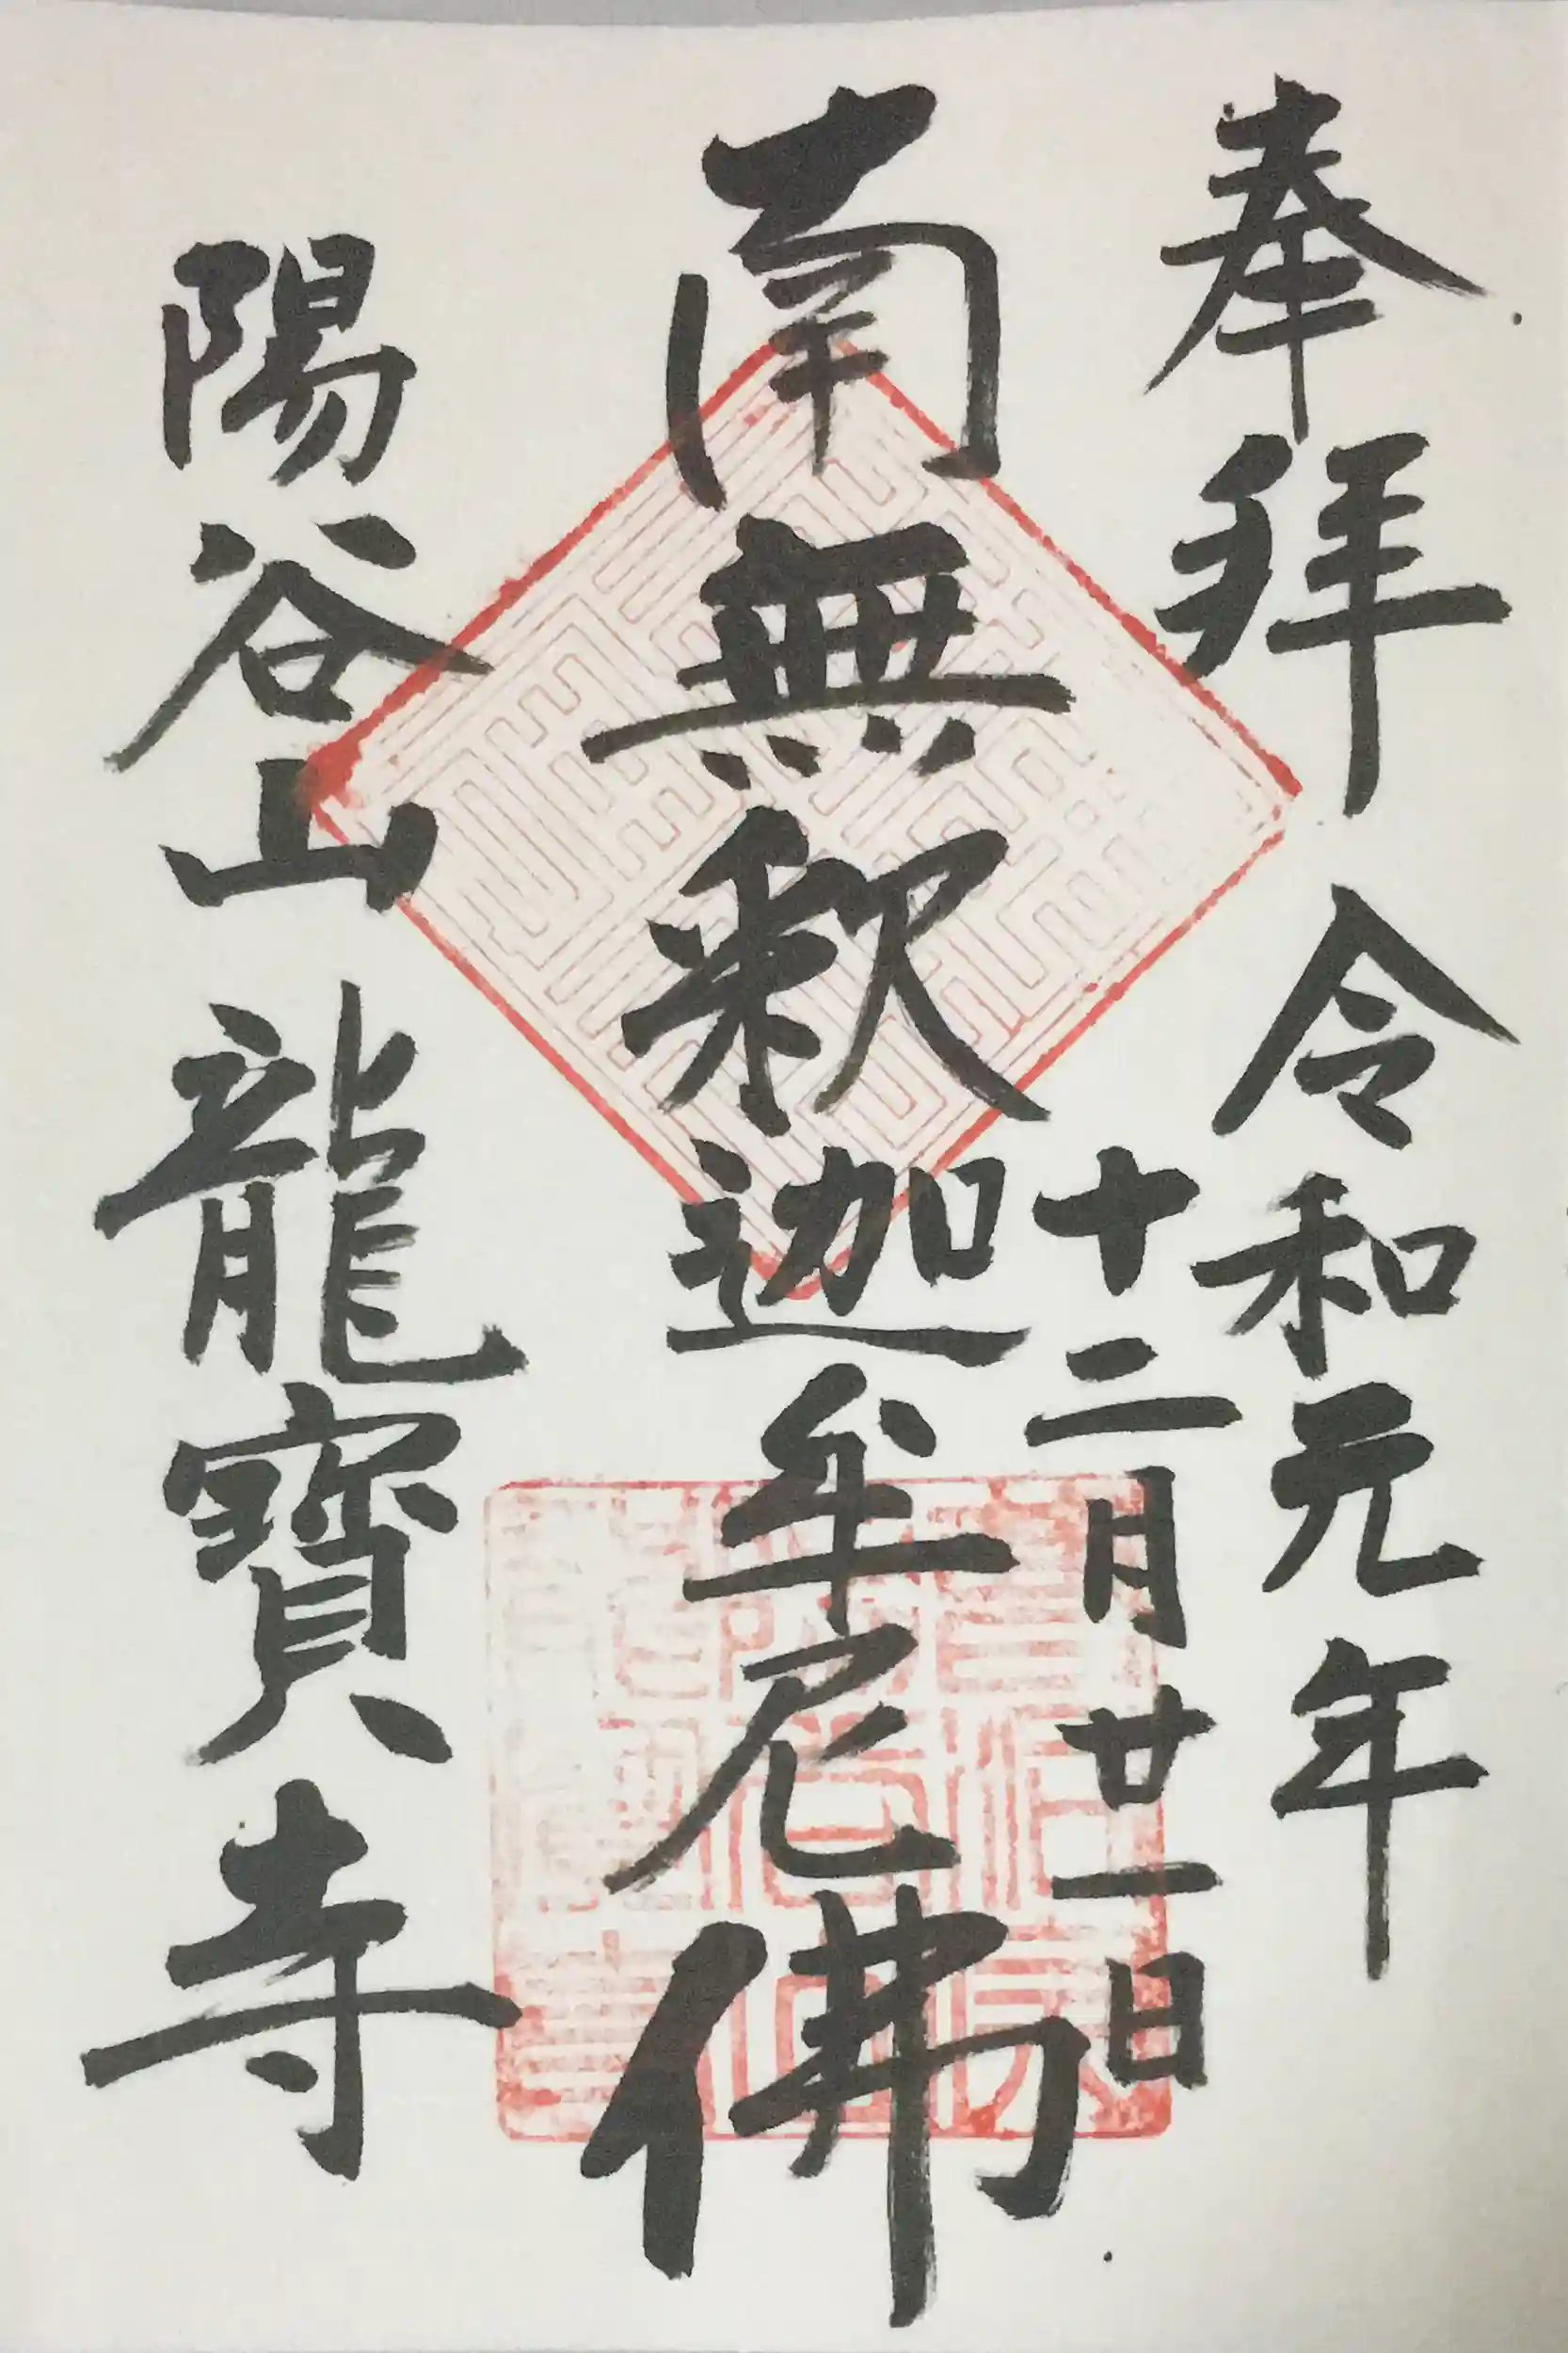 奉拜
令和元年
十二月廿一日
南無釈迦牟尼佛
陽谷山
龍寳寺